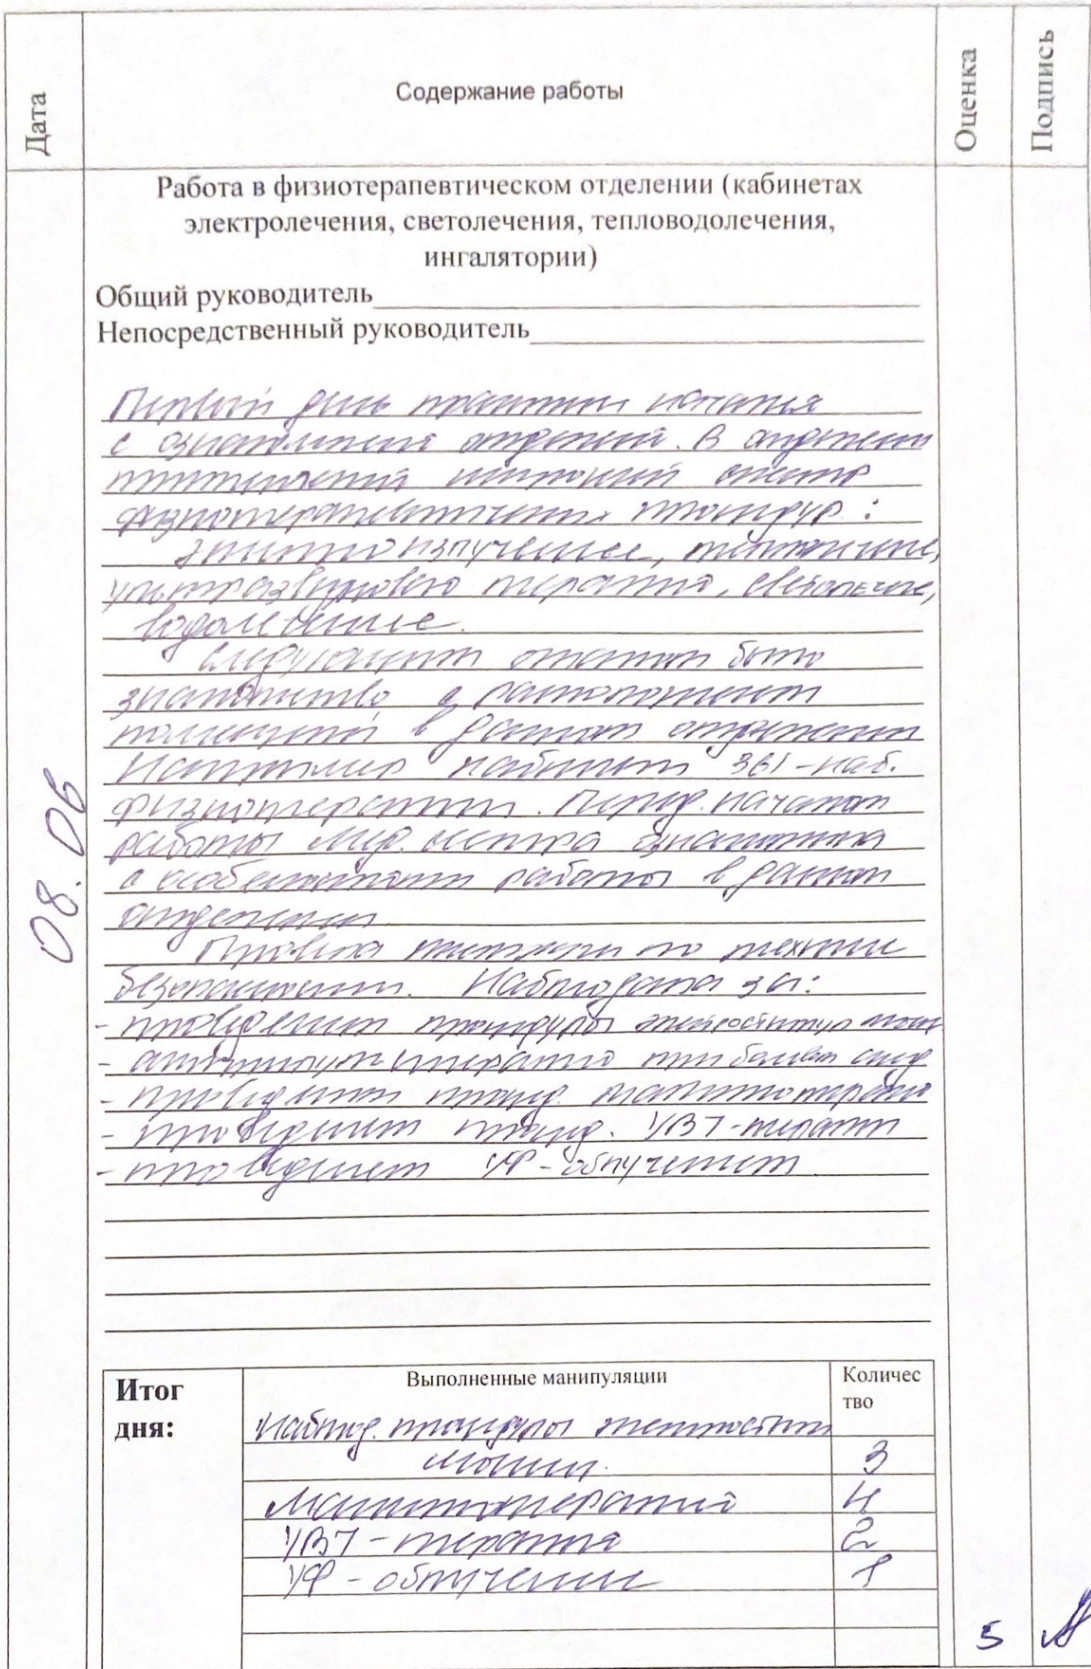 Дата
Содержание работы
Оценка
Подпись
Работа в физиотерапевтическом отделении (кабинетах
электролечения, светолечения, тепловодолечения,
ингалятории)
Общий руководитель
Непосредственный руководитель
08.06
Первый день практики начался
с ознакомления отделений. В отделении
широкий спектр
физиотерапевтических процедур:
теплолечение,
ультразвуковая терапия, светолечение,
водолечение.
Следующим этапом было
знакомство с расположением
помещений в данном отделении
Например кабинет 361-каб.
физиотерапии. Перед началом
работы мед. сестра ознакомила
с особенностями работы в данном
отделении
Провела инструктаж по технике
безопасности. Наблюдала за:
- проведением процедуры электростимул
- при болевом синд
- проведением процед. магнитотерапии
- проведением процед. УВЧ-терапии
- проведением УФ-облучением
Итог
дня:
Выполненные манипуляции
Количес
тво
Наблюд. процедуры электрости
муляции. 3
Магнитотерапия 4
УВЧ-терапия 2
УФ-облучение 1
5